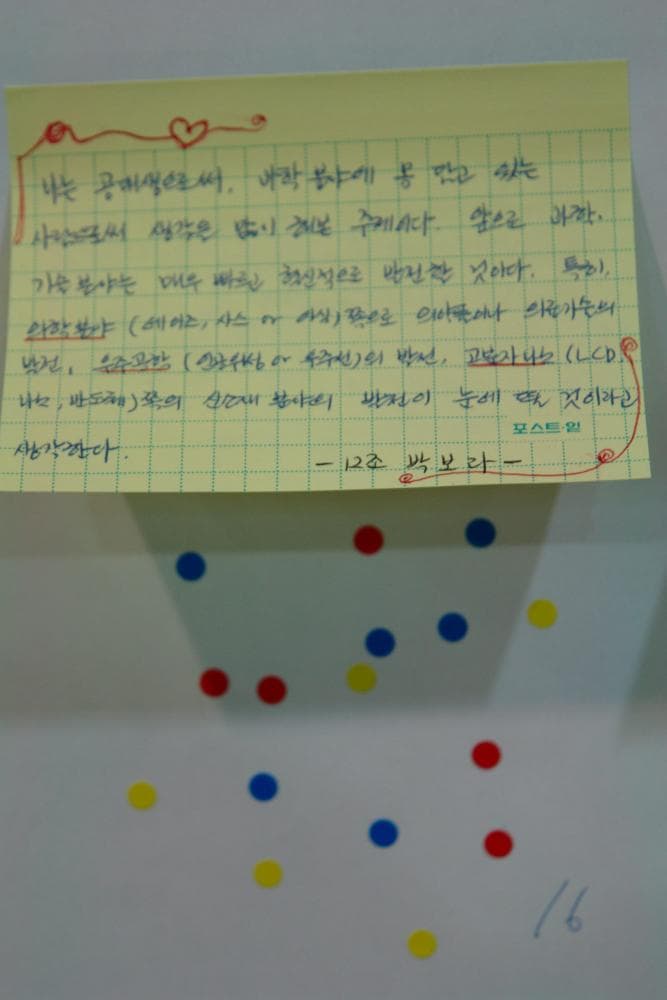 나는 공대생으로써, 과학분야에 몸 담고 있는
사람으로써 생각을 많이 해본 주제이다. 앞으로 과학,
기술분야는 매우 빠르고 혁신적으로 발전할 것이다. 특히,
의학분야 (에이즈, 사스 or 암)쪽으로 의약품이나 의료기술의
발전, 우주과학 (인공위성 or 우주선)의 발전, (LCD,
나노, 반도체)쪽의 신소재 분야의 발전이 눈에 띌 것이라고
생각한다.
포스트-잇
- 12조 박보라 -
16